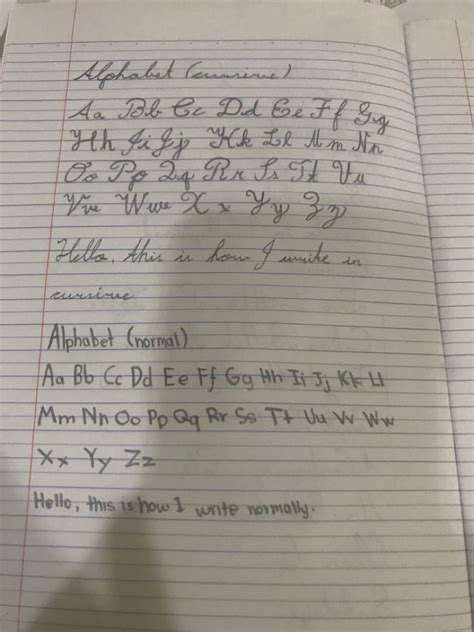 Alphabet (cursive)
Aa Bb Cc Dd Ee Ff Gg
Hh Ii Jj Kk Ll Mm Nn
Oo Pp Qq Rr Ss Tt Uu
Vv Ww Xx Yy Zz
Hello, this is how I write in
cursive
Alphabet (normal)
Aa Bb Cc Dd Ee Ff Gg Hh Ii Jj Kk Ll
Mm Nn Oo Pp Qq Rr Ss Tt Uu Vv Ww
Xx Yy Zz
Hello, this is how I write normally.